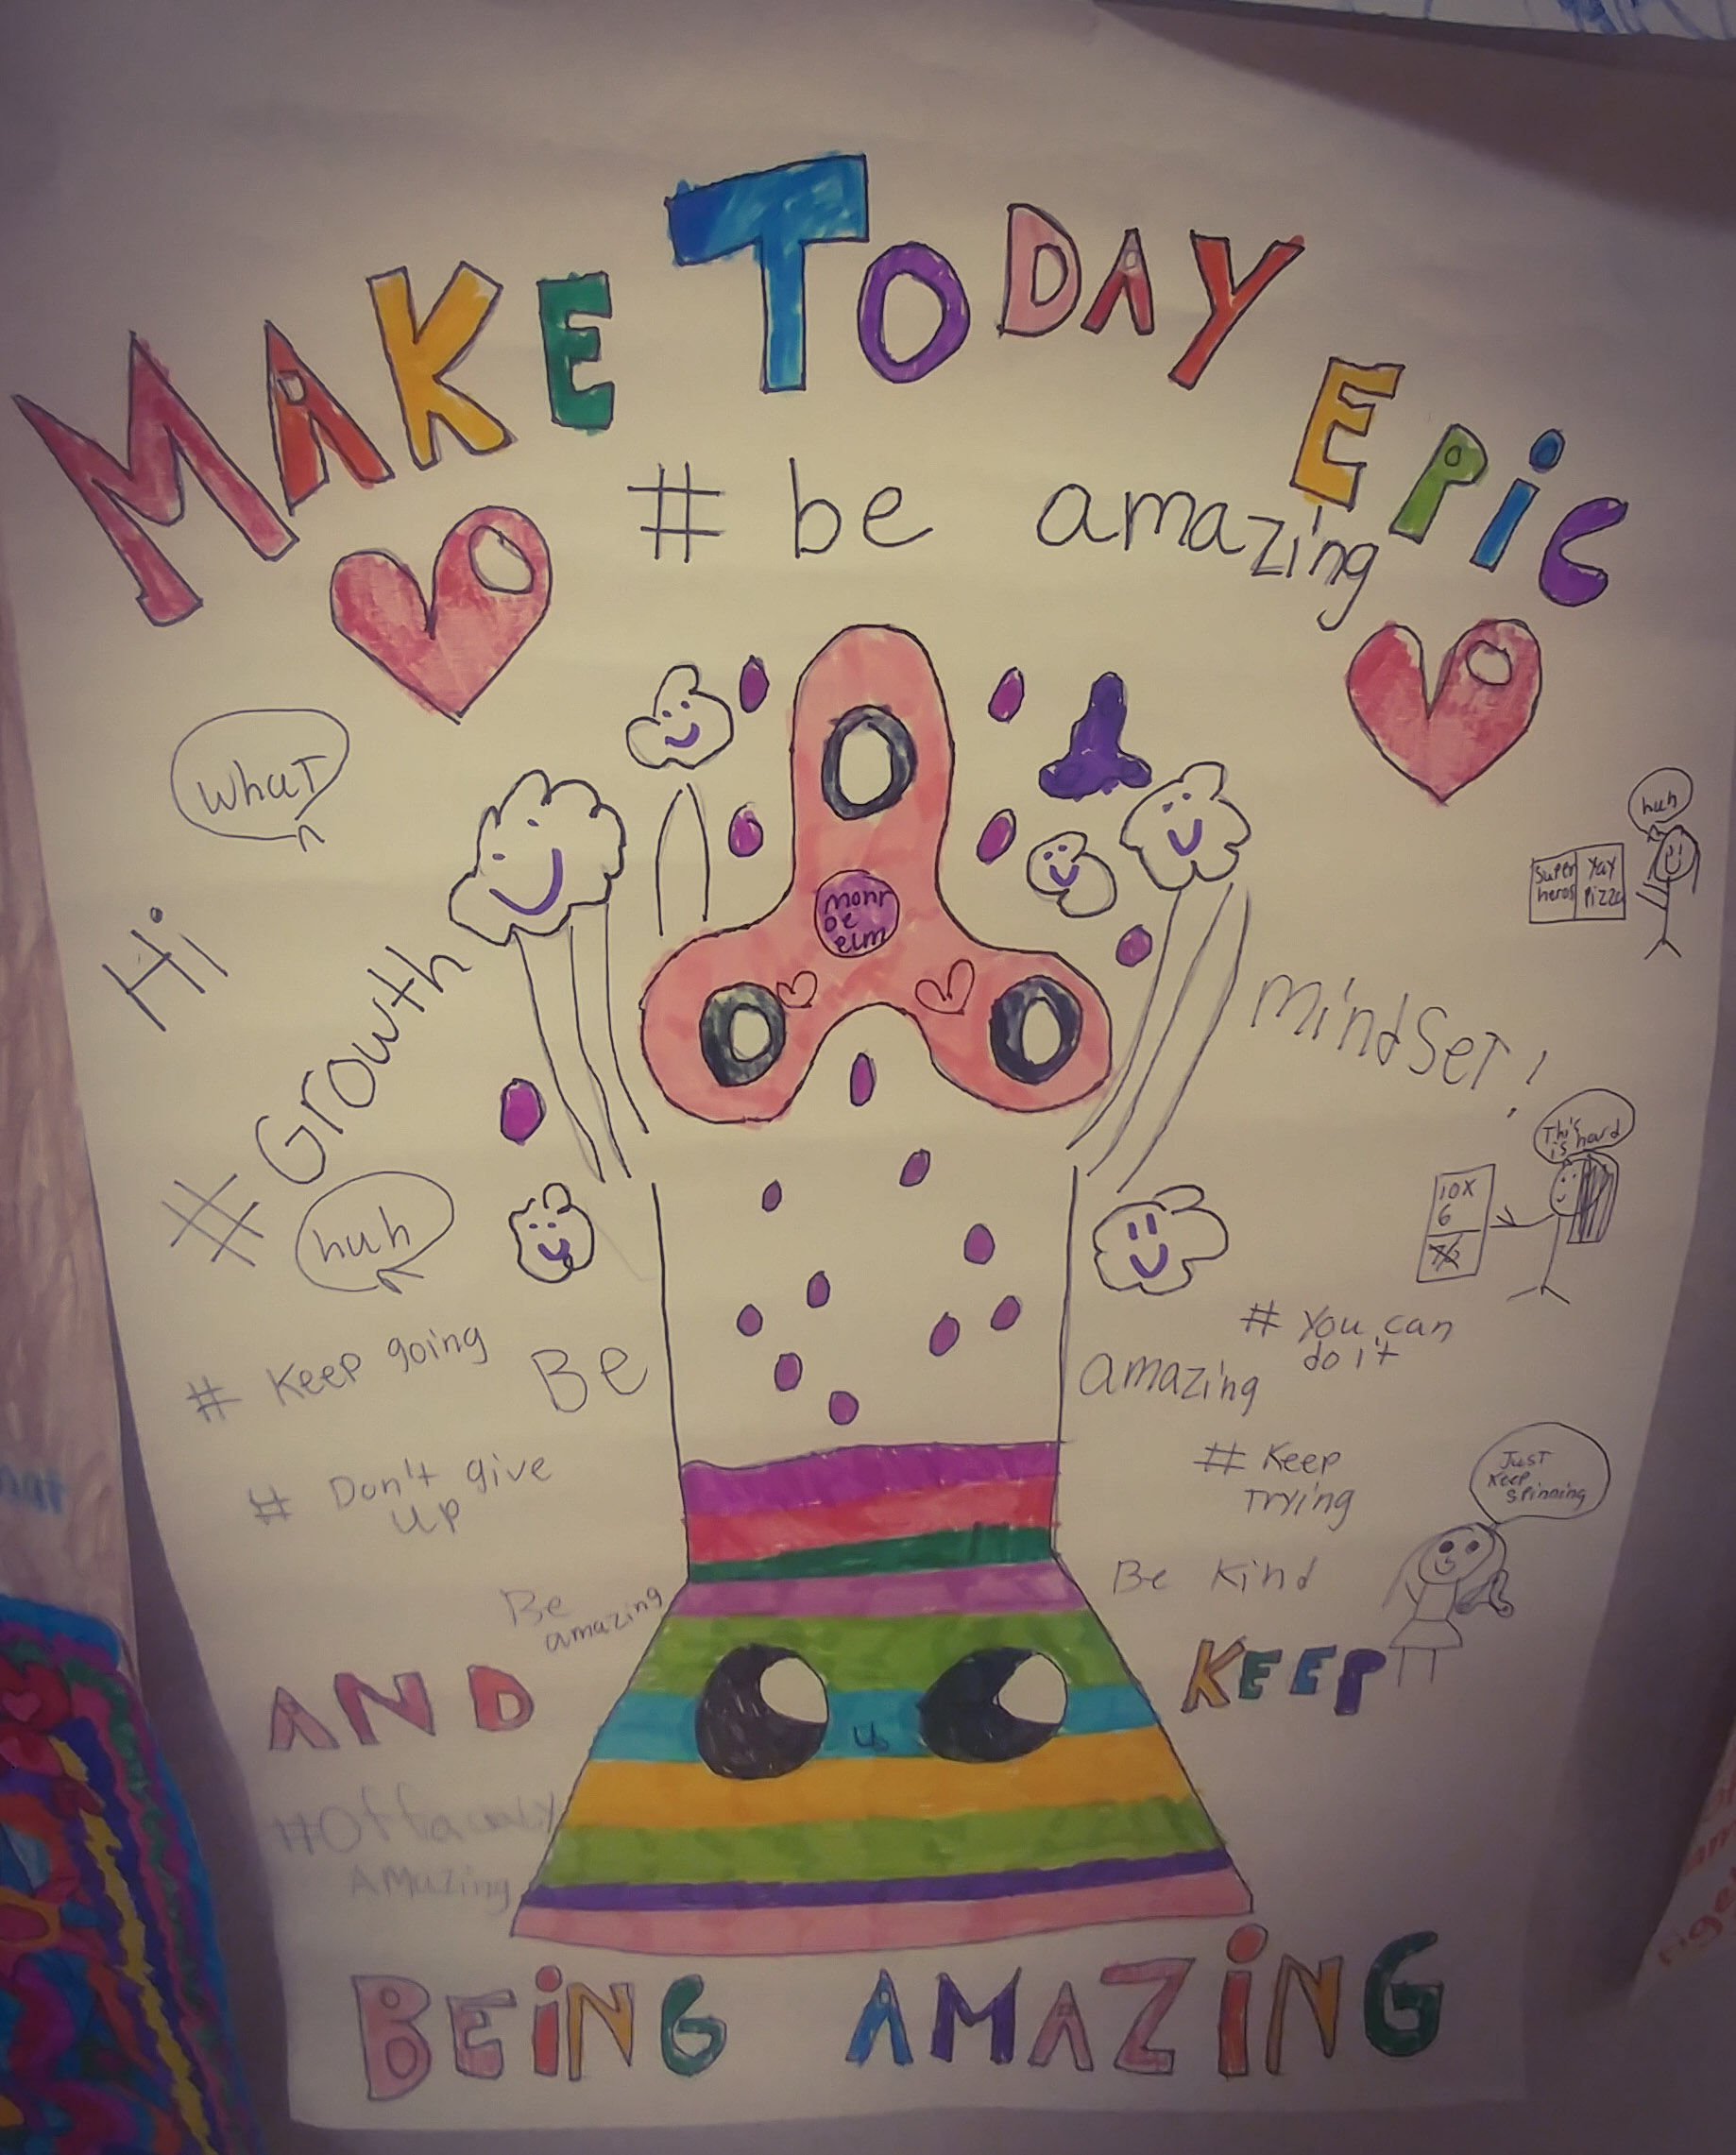 MAKE TODAY EPiC
# be amazing
What
huh
Super
heros
Yay
Pizza
Hi
monr
oe
elm
# Growth
mindSeT!
This
is hard
10x
6
huh
# Keep going
Be
amazing
# You can
do it
# Don't give
up
# Keep
Trying
Just
Keep
Spinning
Be
amazing
Be Kind
AND
KEEP
Amazing
BEiNG AMAZiNG